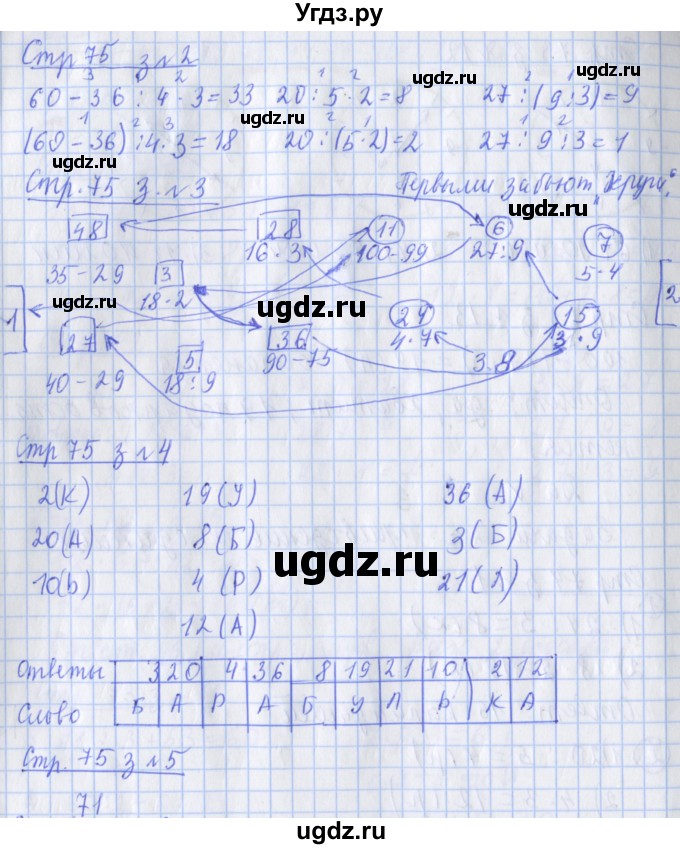 Угдз.ру
Стр 75 з №2
3 1 2
60 - 36 : 4 · 3 = 33
1 2
20 : 5 · 2 = 8
2 1
27 : (9 : 3) = 9
1 2 3
(60 - 36) : 4 · 3 = 18
2 1
20 : (5 · 2) = 2
1 2
27 : 9 : 3 = 1
Стр. 75 з. №3
Первыми забьют "Круги"
48 28 11 6 7
16 · 3 100 - 99 27 : 9 5 · 4
35 - 29 3
18 · 2
1 24 15 2
27 36 4 · 7 3 · 9
5 90 - 75 3 · 8
40 - 29 18 : 9
Стр 75 з №4
2(К) 19(У) 36(А)
20(А) 8(Б) 3(Б)
10(Ь) 4(Р) 21(Л)
12(А)
Ответы 3 20 4 36 8 19 21 10 2 12
Слово Б А Р А Б У Л Ь К А
Стр. 75 з №5
71
ugdz.ru
ugdz.ru
ugdz.ru
ugdz.ru
ugdz.ru
ugdz.ru
ugdz.ru
ugdz.ru
ugdz.ru
ugdz.ru
ugdz.ru